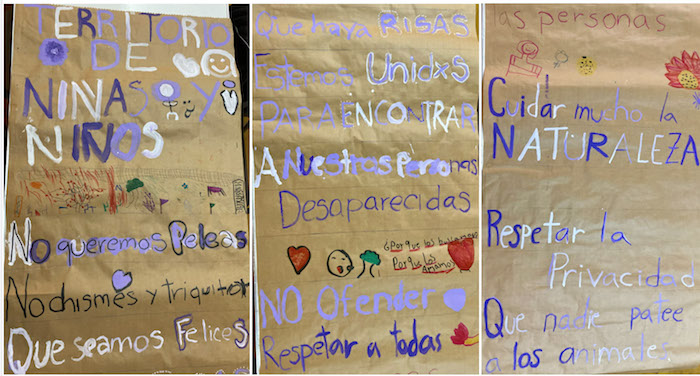 TERRITORIO
DE
NIÑAS Y
NIÑOS
No queremos Peleas
No chismes y triquiter
Que seamos Felices
Que haya RISAS
Estemos Unidxs
PARA ENCONTRAR
A Nuestras Personas
Desaparecidas
¿Porque los buscamos?
Porque los
Amamos
NO Ofender
Respetar a todas
las personas
Cuidar mucho la
NATURALEZA
Respetar la
Privacidad
Que nadie patee
a los animales